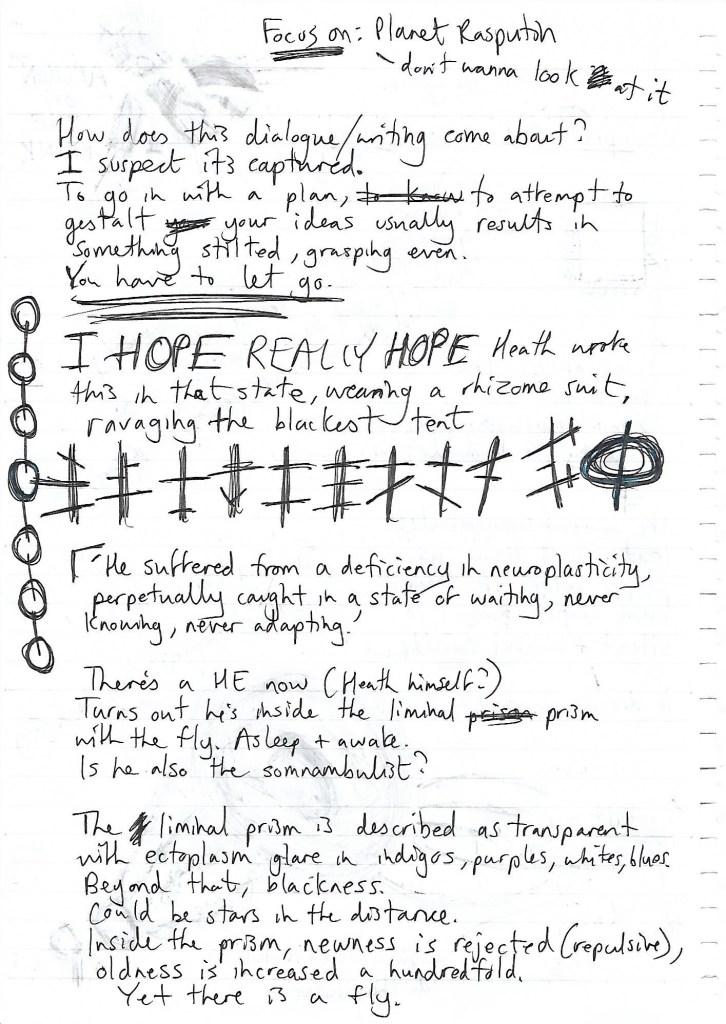 Focus on: Planet Rasputin
- don't wanna look at it
How does this dialogue/writing come about?
I suspect its captured.
To go in with a plan, to know to attempt to
gestalt your ideas usually results in
something stilted, grasping even.
You have to let go.
I HOPE REALLY HOPE Heath wrote
this in that state, wearing a rhizome suit,
ravaging the blackest tent
'He suffered from a deficiency in neuroplasticity,
perpetually caught in a state of waiting, never
knowing, never adapting.'
There's a HE now (Heath himself?)
Turns out he's inside the liminal prison prism
with the fly. Asleep + awake.
Is he also the somnambulist?
The liminal prism is described as transparent
with ectoplasm glare in indigos, purples, whites, blues.
Beyond that, blackness.
Could be stars in the distance.
Inside the prism, newness is rejected (repulsive),
oldness is increased a hundredfold.
Yet there is a fly.